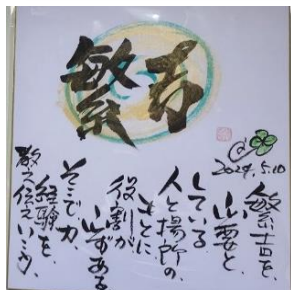 繁吉
2024.5.10
繁吉を、
必要と、
している、
人と場所の、
もとに
役割が
必ずある
そこで力、
経験を、
教え伝え